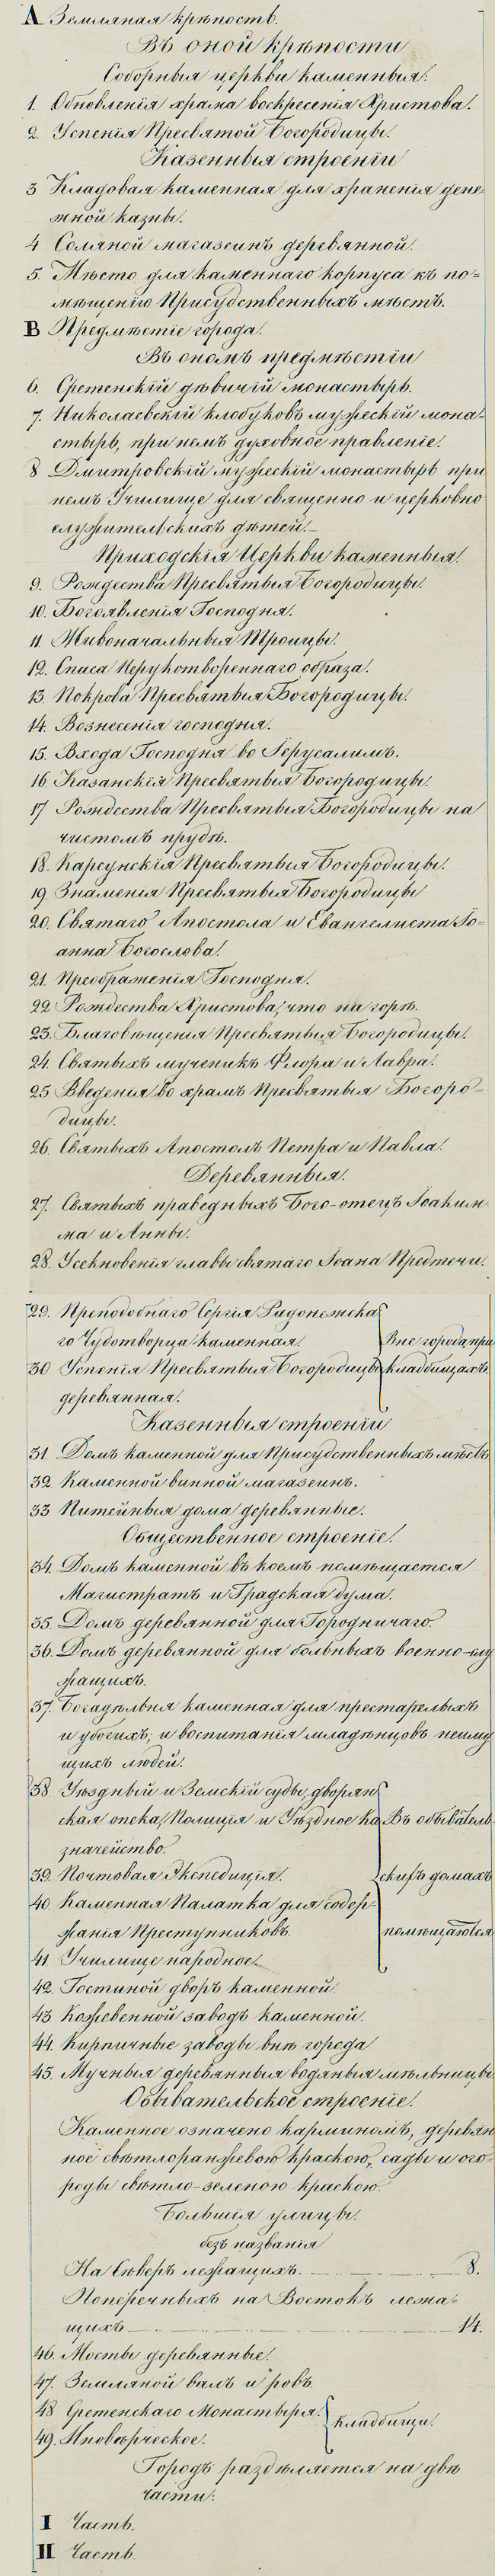 А Земляная крѣпость.
Въ оной крѣпости
Соборныя церкви каменныя:
1. Обновленія храма воскресенія Христова.
2. Успенія Пресвятой Богородицы.
Казенныя строеніи
3 Кладовая каменная для храненія дене
жной казны.
4 Соляной магазеинъ деревянной.
5. Мѣсто для каменнаго корпуса къ по=
мѣщенію Присудственныхъ мѣстъ.
В Предмѣстіе города.
Въ ономъ предмѣстіи
6. Сретенскій дѣвичій монастырь.
7. Николаевскій клобуковъ мужескій мона=
стырь, при немъ духовное правленіе.
8 Дмитровскій мужескій монастырь при
немъ Училище для священно и церковно
служительскихъ дѣтей.
Приходскія Церкви каменныя.
9. Рождества Пресвятыя Богородицы.
10. Богоявленія Господня.
11. Живоначальныя Троицы.
12. Спаса Нерукотвореннаго образа.
13. Покрова Пресвятыя Богородицы.
14. Вознесенія господня.
15. Входа Господня во Іерусалимъ.
16 Казанскія Пресвятыя Богородицы.
17 Рождества Пресвятыя Богородицы на
чистомъ прудѣ.
18. Карсунскія Пресвятыя Богородицы.
19. Знаменія Пресвятыя Богородицы
20. Святаго Апостола и Евангелиста Іо=
анна Богослова.
21. Преображенія Господня.
22 Рождества Христова, что на горѣ.
23. Благовѣщенія Пресвятыя Богородицы.
24. Святыхъ мученикъ Флора и Лавра.
25 Введенія во храмъ Пресвятыя Богоро=
дицы.
26. Святыхъ Апостолъ Петра и Павла.
Деревянныя.
27. Святыхъ праведныхъ Бого-отецъ Іоаким
ма и Анны.
28. Усекновенія главы святаго Іоана Предтечи.
29. Преподобнаго Сергія Радонежска
го Чудотворца каменная. Вне города при
30 Успенія Пресвятыя Богородицы кладбищахъ.
деревянная.
Казенныя строеніи
31. Домъ каменной для Присудственныхъ мѣстъ
32. Каменной винной магазеинъ.
33 Питейныя дома деревянные.
Общественное строеніе.
34. Домъ каменной въ коемъ помѣщается
Магистратъ и Градская дума.
35. Домъ деревянной для Городничаго.
36. Домъ деревянной для больныхъ военно-слу
жащихъ.
37. Богадѣльня каменная для престарелыхъ
и убогихъ, и воспитанія младѣнцовъ неиму
щихъ людей.
38 Уѣздный и Земскій суды, дворян
ская опека, Полиція и Уѣздное Ка Въ обыватель
значейство.
39. Почтовая Экспедиція. скихъ домахъ
40. Каменная Палатка для содер-
жанія Преступниковъ помѣщаются
41. Училище народное.
42. Гостиной дворъ каменной.
43 Кожевенной заводъ каменной.
44. Кирпичные заводы внѣ города
45. Мучныя деревянныя водяныя мѣльницы.
Обывательское строеніе.
Каменное означено карминомъ, деревян
ное свѣтлоранжевою краскою, сады и ого=
роды свѣтло-зеленою краскою.
Большія улицы.
безъ названія
На Сѣверъ лежащихъ. 8.
Поперечныхъ на Востокъ лежа=
щихъ 14.
46. Мосты деревянные.
47. Земляной валъ и ровъ
48 Сретенскаго Монастыря. кладбищи.
49. Иновѣрческое.
Городъ раздѣляется на двѣ
части:
I Часть.
II Часть.